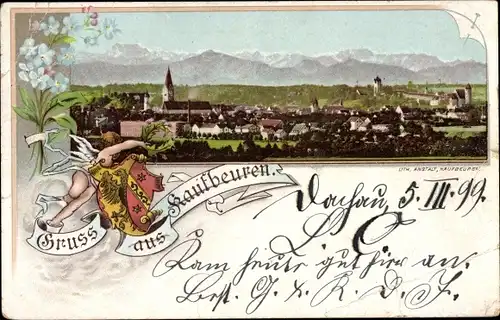 LITH. ANSTALT, KAUFBEUREN.
Gruss aus Kaufbeuren.
Dachau, 5. III. 99.
Kam heute gut hier an.
Best. G. & K. D. J.